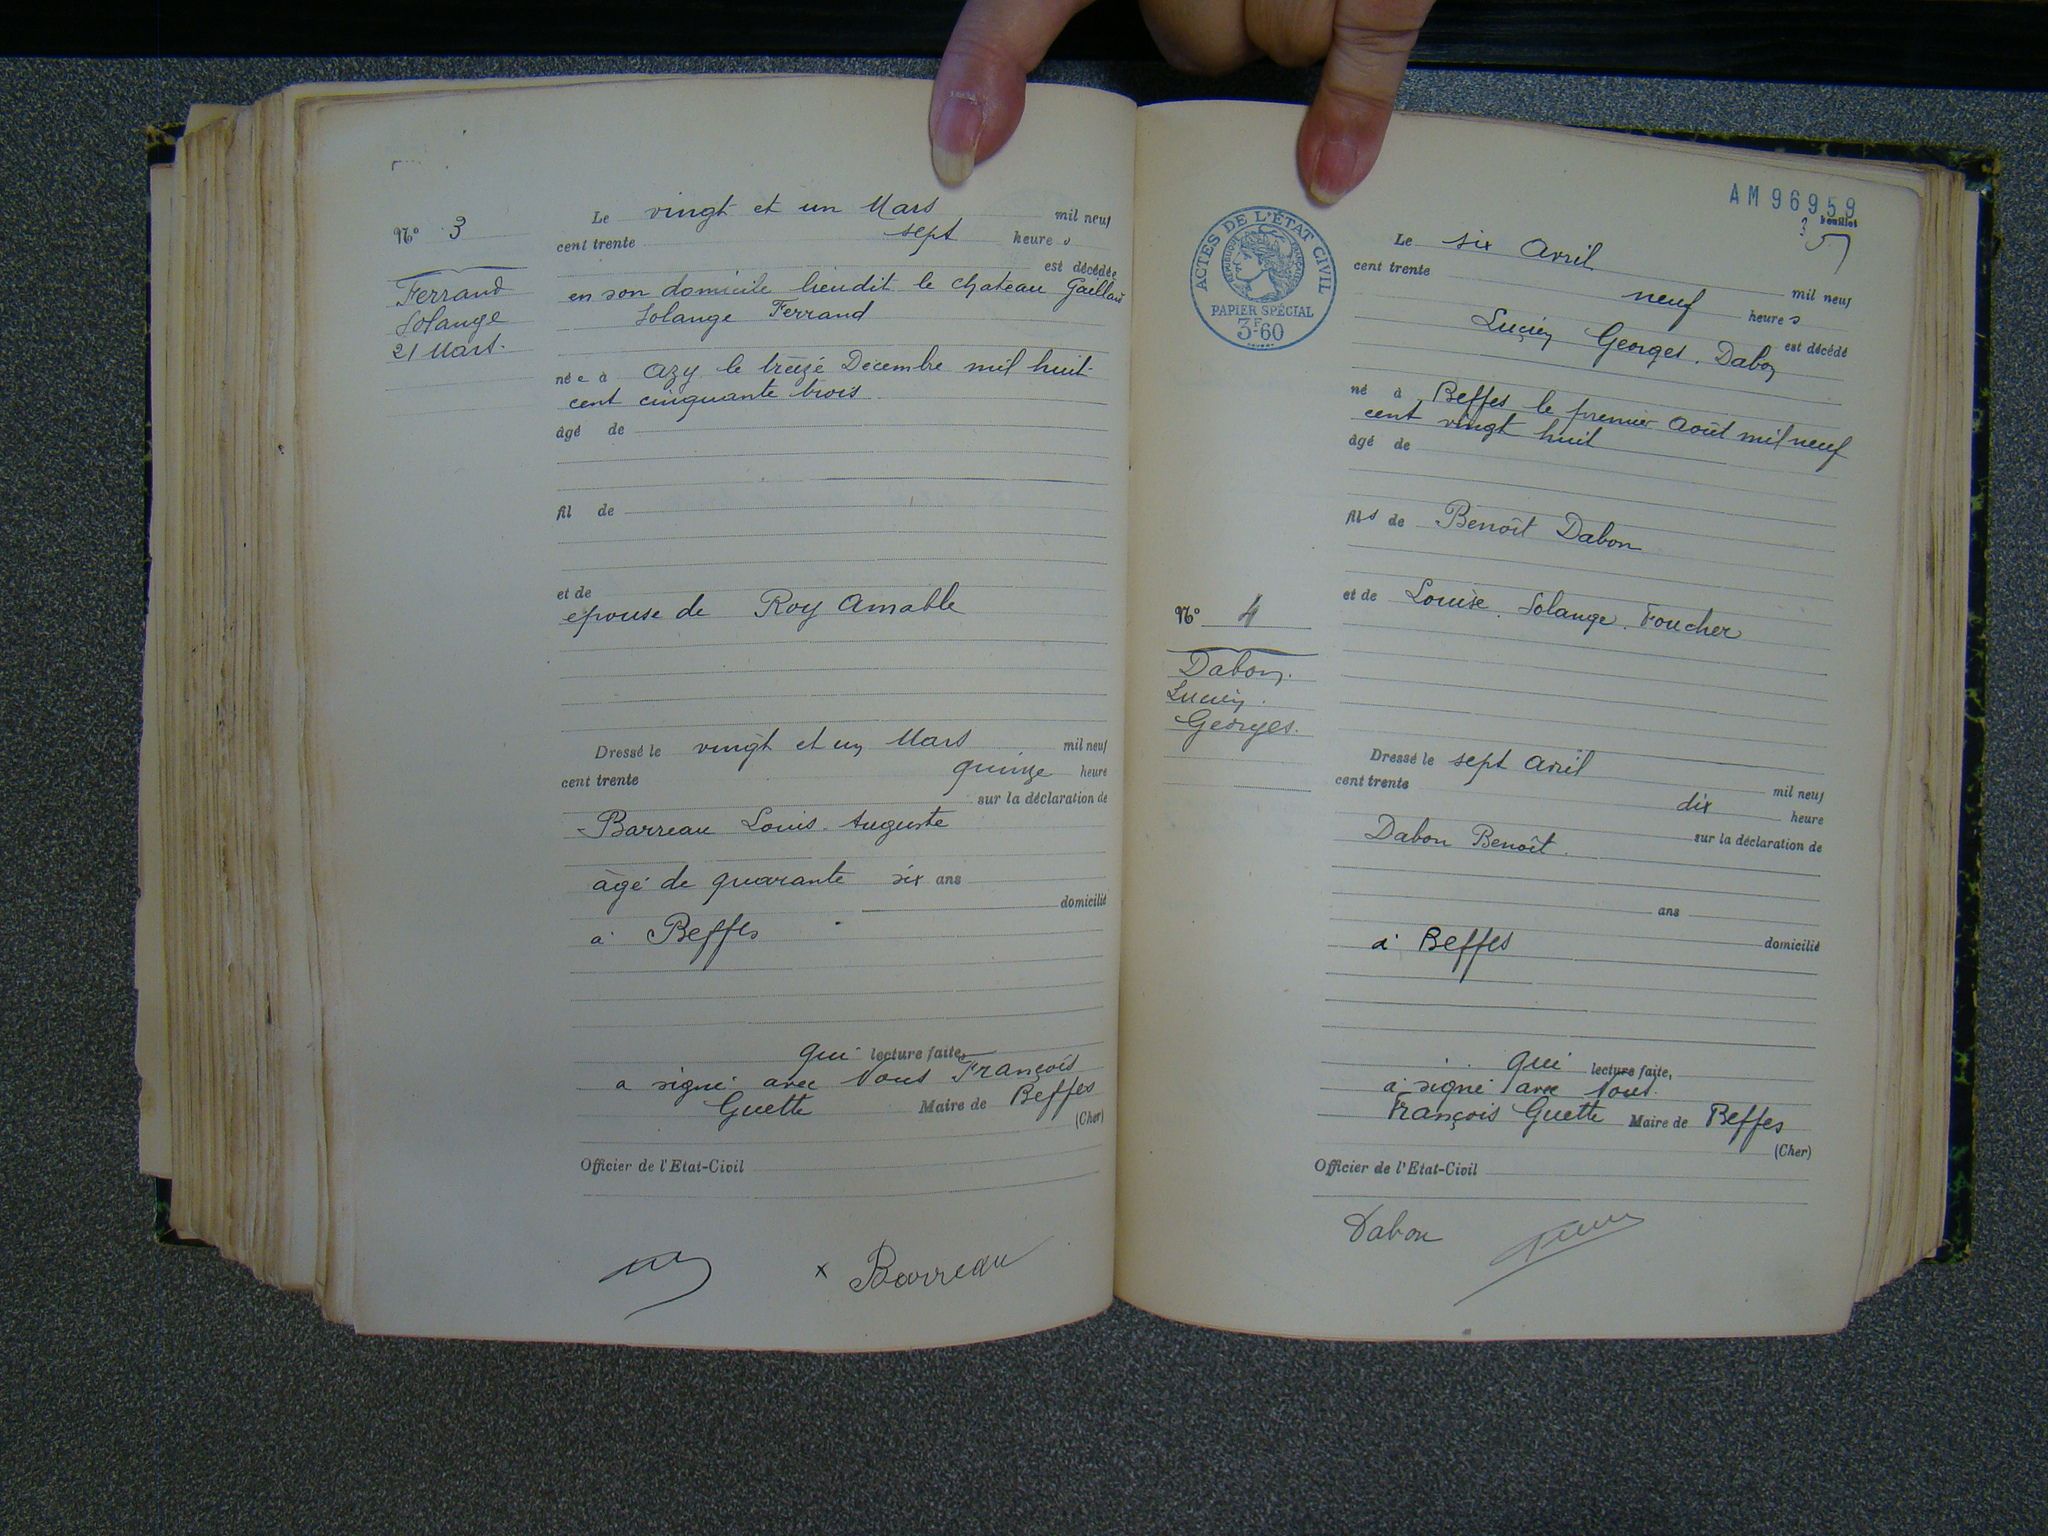 N° 3
Ferrand
Solange
21 Mars.
Le vingt et un Mars mil neuf
cent trente sept heures
est décédée
en son domicile lieudit le chateau Gaillard
Solange Ferrand
née à Azy le treize Décembre mil huit
cent cinquante trois
âgé de
fil de
et de
épouse de Roy Amable
Dressé le vingt et un Mars mil neuf
cent trente quinze heure
sur la déclaration de
Barreau Louis Auguste
âgé de quarante six ans
domicilié
à Beffes
qui lecture faite,
a signé avec Nous François
Guette Maire de Beffes
(Cher)
Officier de l'Etat-Civil
x Barreau
AM96959
3 Feuillet
ACTES DE L'ÉTAT CIVIL
RÉPUBLIQUE FRANÇAISE
PAPIER SPÉCIAL
3F60
Le six Avril mil neuf
cent trente neuf heures
est décédé
Lucien Georges Dabon
né à Beffes le premier Août mil neuf
cent vingt huit
âgé de
fils de Benoît Dabon
et de Louise Solange Foucher
N° 4
Dabon
Lucien
Georges.
Dressé le sept Avril mil neuf
cent trente dix heure
sur la déclaration de
Dabon Benoît
ans
domicilié
à Beffes
qui lecture faite,
a signé avec Nous
François Guette Maire de Beffes
(Cher)
Officier de l'Etat-Civil
Dabon